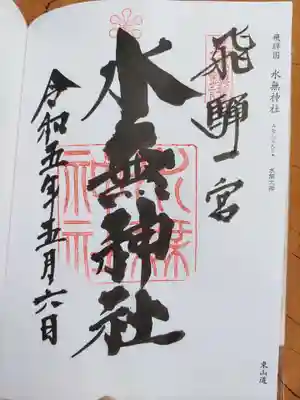 飛騨国 水無神社
飛騨一宮
水無神社
令和五年五月六日
東山道